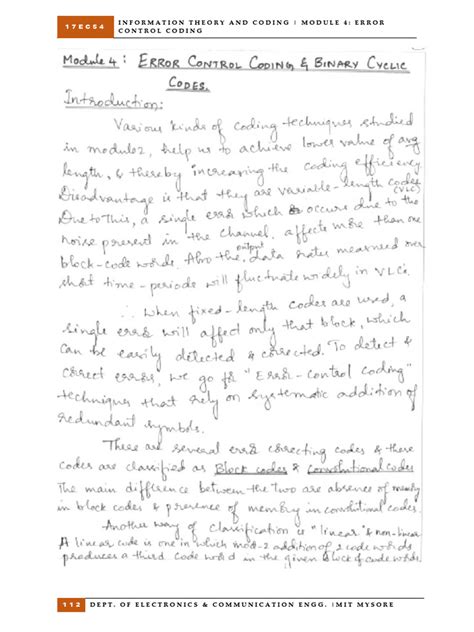 17EC54
INFORMATION THEORY AND CODING | MODULE 4: ERROR
CONTROL CODING
Module 4 : ERROR CONTROL CODING & BINARY CYCLIC
CODES.
Introduction:
Various kinds of coding techniques studied
in module2, help us to achieve lower value of avg
length, & thereby increasing the coding efficiency
Disadvantage is that they are variable-length codes
(VLC)
Due to this, a single error which occurs due to the
noise present in the channel, affects more than one
output
block-code words. Also the, data rates measured over
short time-periods will fluctuate widely in VLCs.
∴ When fixed-length codes are used, a
single error will affect only that block, which
can be easily detected & corrected. To detect &
correct errors, we go for "Error-control coding"
techniques that rely on systematic addition of
redundant symbols.
There are several error correcting codes & these
codes are classified as Block codes & Convolutional codes
The main difference between the two are absence of memory
in block codes & presence of memory in convolutional codes.
Another way of classification is "linear" & non-linear
A linear code is one in which mod-2 addition of 2 code words
produces a third code word in the given block of code words.
112
DEPT. OF ELECTRONICS & COMMUNICATION ENGG. |MIT MYSORE